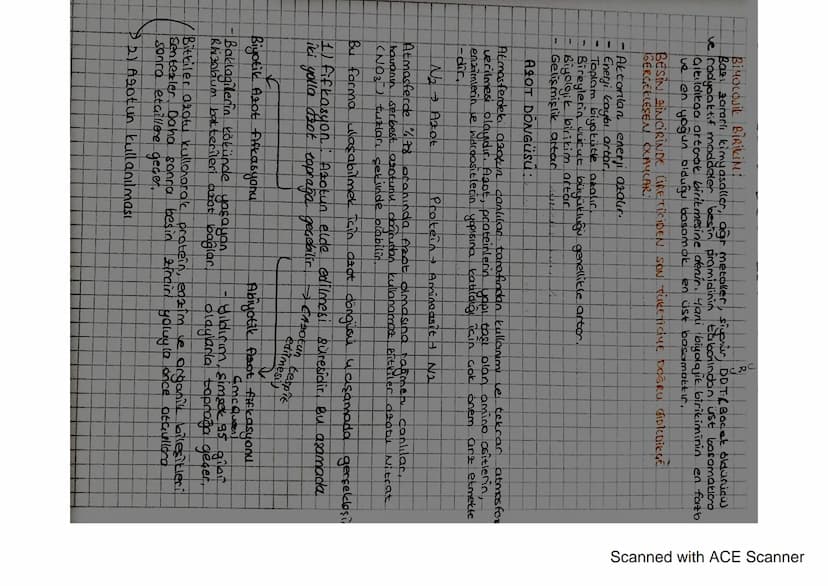 BİYOLOJİK BİRİKİM:
Bazı zararlı kimyasallar, ağır metaller, siyanür, DDT (Böcek öldürücü)
ve radyoaktif maddeler besin piramidinin tabanından üst basamaklara
çıkıldıkça artarak birikmesine denir. Yani biyolojik birikiminin en fazla
ve en yoğun olduğu basamak en üst basamaktır.
BESİN ZİNCİRİNDE ÜRETİCİDEN SON TÜKETİCİYE DOĞRU GİDİLDİKÇE
GERÇEKLEŞEN OLAYLAR:
- Aktarılan enerji azalır.
- Enerji kaybı artar.
- Toplam biyokütle azalır.
- Bireylerin vücut büyüklüğü genellikle artar.
- Biyolojik birikim artar
- Gelişmişlik artar
AZOT DÖNGÜSÜ:
Atmosferdeki azotun canlılar tarafından kullanımı ve tekrar atmosfere
verilmesi olayıdır. Azot, proteinlerin yapı taşı olan amino asitlerin,
enzimlerin ve nükleositlerin yapısına katıldığı için çok önem arz etmekte
-dir.
N₂ → Azot Protein → Aminoasit → N₂
Atmosferde %78 oranında Azot olmasına rağmen canlılar,
havanın serbest azotunu doğrudan kullanamaz bitkiler azotu Nitrat
(NO₃⁻) tuzları şeklinde alabilir.
Bu forma ulaşabilmek için azot döngüsü 4 aşamada gerçekleşir
1) Fifkasyon: Azotun elde edilmesi süresidir. Bu aşamada
iki yolla azot toprağa geçebilir. → (Azotun
tespit
edilmesi)
Biyotik Azot fifkasyonu Abiyotik Azot fifkasyonu
- Baklagillerin kökünde yaşayan
Rhizobium bakterileri azot bağlar.
- Yıldırım, Şimşek gibi
olaylarla toprağa geçer.
Bitkiler azotu kullanarak protein, enzim ve organik bileşikleri
sentezler. Daha sonra besin zinciri yoluyla önce otçullara
sonra etçillere geçer.
→ 2) Azotun kullanılması
Scanned with ACE Scanner